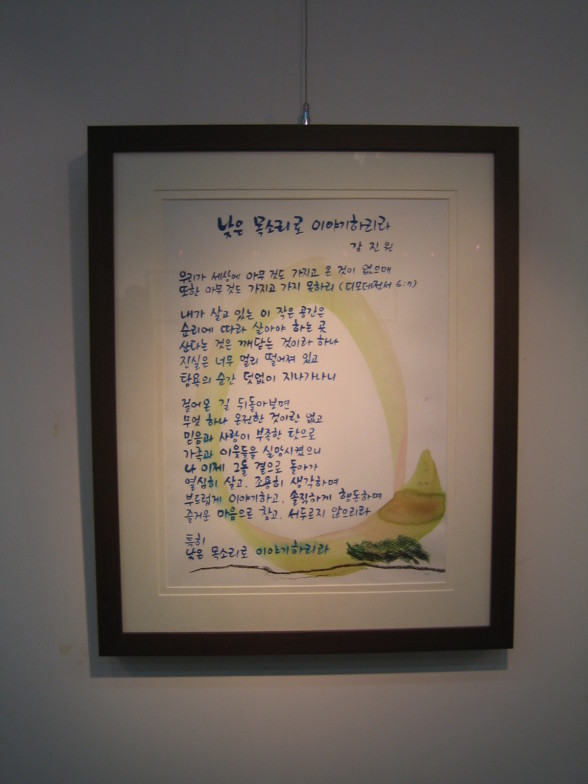 낮은 목소리로 이야기하리라
강 진 원
우리가 세상에 아무 것도 가지고 온 것이 없으매
또한 아무 것도 가지고 가지 못하리 (디모데전서 6:7)
내가 살고 있는 이 작은 공간은
순리에 따라 살아야 하는 곳
산다는 것은 깨닫는 것이라 하나
진실은 너무 멀리 떨어져 있고
탐욕의 순간 덧없이 지나가나니
걸어온 길 뒤돌아보면
무엇 하나 온전한 것이란 없고
믿음과 사랑이 부족한 탓으로
가족과 이웃들을 실망시켰으니
나 이제 그들 곁으로 돌아가
열심히 살고, 조용히 생각하며
부드럽게 이야기하고, 솔직하게 행동하며
즐거운 마음으로 참고, 서두르지 않으리라
특히
낮은 목소리로 이야기하리라